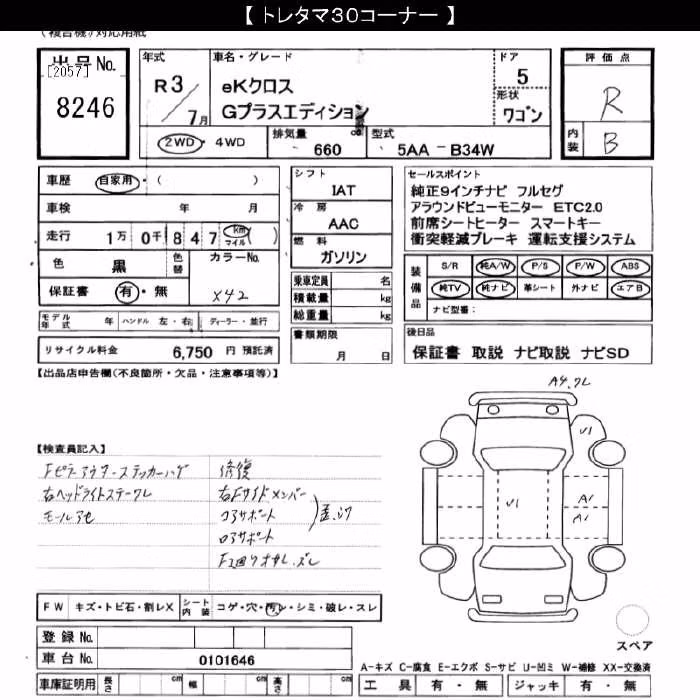 【 トレタマ３０コーナー 】
(複合機)対応用紙
出品No. [2057] 8246
年式 R3/7月
車名・グレード eKクロス Gプラスエディション
ドア 5
形状 ワゴン
評価点 R
内装 B
2WD ・ 4WD 排気量 660 cc 型式 5AA － B34W
車歴 自家用・( )
車検 年 月
走行 1万 0千 8 4 7 km マイル ( )
色 黒 色替 カラーNo. X42
保証書 有・無
モデル年式 年 ハンドル 左・右 ディーラー・並行
リサイクル料金 6,750 円 預託済
シフト IAT
冷房 AAC
燃料 ガソリン
乗車定員 名
積載量 kg
総重量 kg
書類期限 月 日
セールスポイント
純正9インチナビ フルセグ
アラウンドビューモニター ETC2.0
前席シートヒーター スマートキー
衝突軽減ブレーキ 運転支援システム
装備品 S/R 純A/W P/S F/W ABS
純TV 純ナビ 革シート 外ナビ エアB
ナビ型番:
後日品
保証書 取説 ナビ取説 ナビSD
【出品店申告欄(不良箇所・欠品・注意事項等)】
【検査員記入】
Fピラーアウターステッカーハゲ
右ヘッドライトステークレ
修復
右Fサイドメンバー
コアサポート
ロアサポート
U1
U1
A1
A1
FW キズ・トビ石・割レX シート内装 コゲ・穴・汚レ・シミ・破レ・スレ
登録No.
車台No. 0101646
車庫証明用 長さ cm 幅 cm 高さ cm
スペア
A-キズ C-腐食 E-エクボ S-サビ U-凹ミ W-補修 XX-交換済
工具 有・無 ジャッキ 有・無